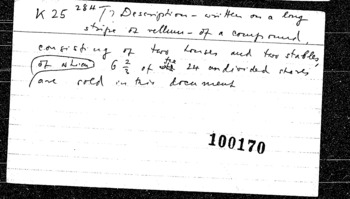 K 25 284 T) Description - written on a long
stripe of vellum - of a compound,
consisting of two houses and two stables,
of which 6 2/3 of the 24 undivided shares
are sold in this document
100170